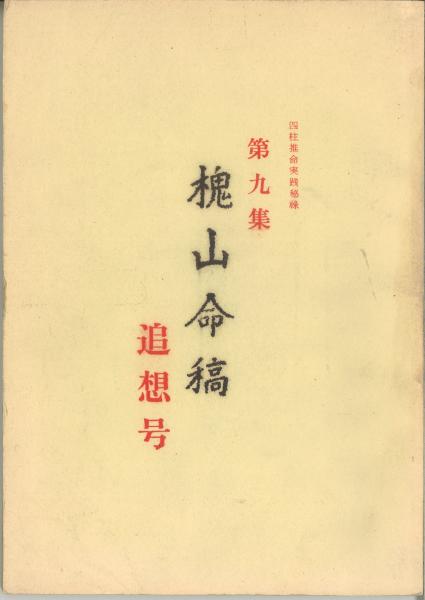 四柱推命実践秘録
第九集
槐山命稿
追想号